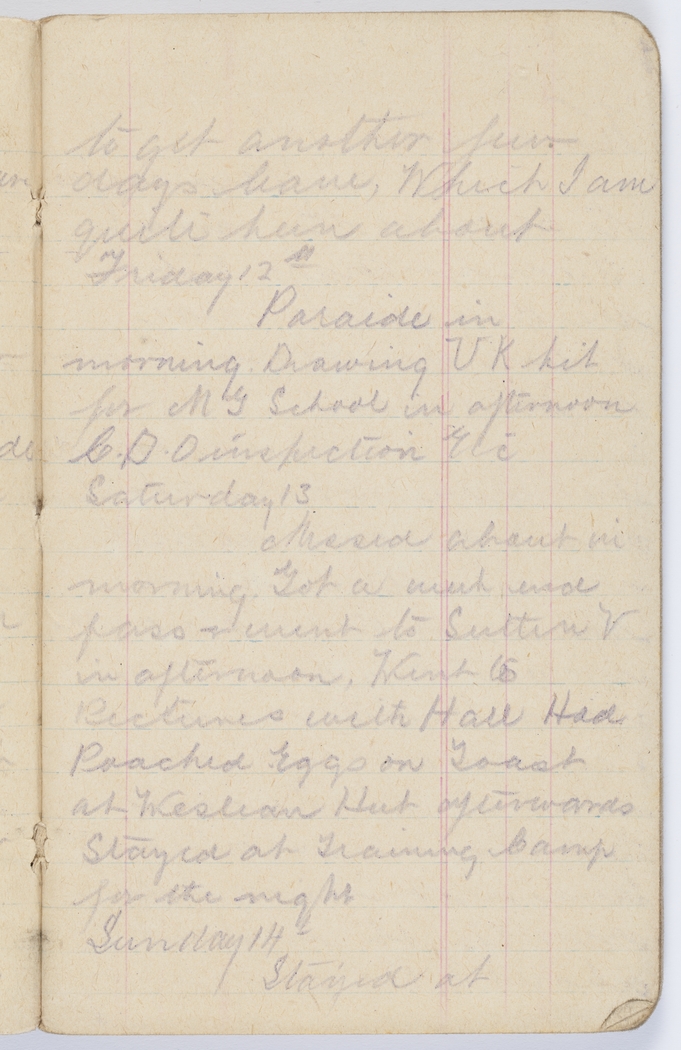 to get another few
days leave, Which I am
quite keen about
Friday 12th
Paraide in
morning. Drawing U K kit
for M G School in afternoon
C.D.O inspection Etc
Saturday 13
Messed about in
morning. Got a week end
pass & went to Sutton V
in afternoon, Went to
Pictures with Hall Had
Poached Eggs on Toast
at Weslean Hut afterwards
Stayed at Training Camp
for the night
Sunday 14th
Stayed at